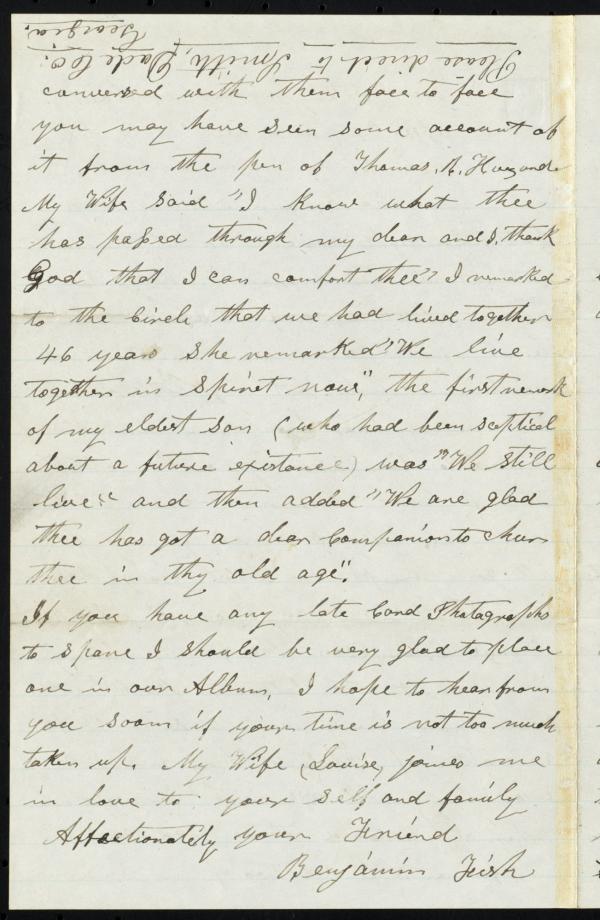 Please direct to Smith, Dade Co.
Georgia.
conversed with them face to face
you may have seen some account of
it from the pen of Thomas. R. Hazard
My Wife said "I know what thee
has passed through my dear and I, thank
God that I can comfort thee" I remarked
to the Circle that we had lived together
46 years She remarked "We live
together in Spiret now", the first remark
of my eldest son (who had been sceptical
about a future existance) was "We still
live" and then added "We are glad
thee has got a dear Companion to cheer
thee in thy old age".
If you have any late Card Photagraphs
to spare I should be very glad to place
one in our Album, I hope to hear from
you soon if your time is not too much
taken up. My Wife (Louise) joines me
in love to your self and family
Affectionately your Friend
Benjamin Fish